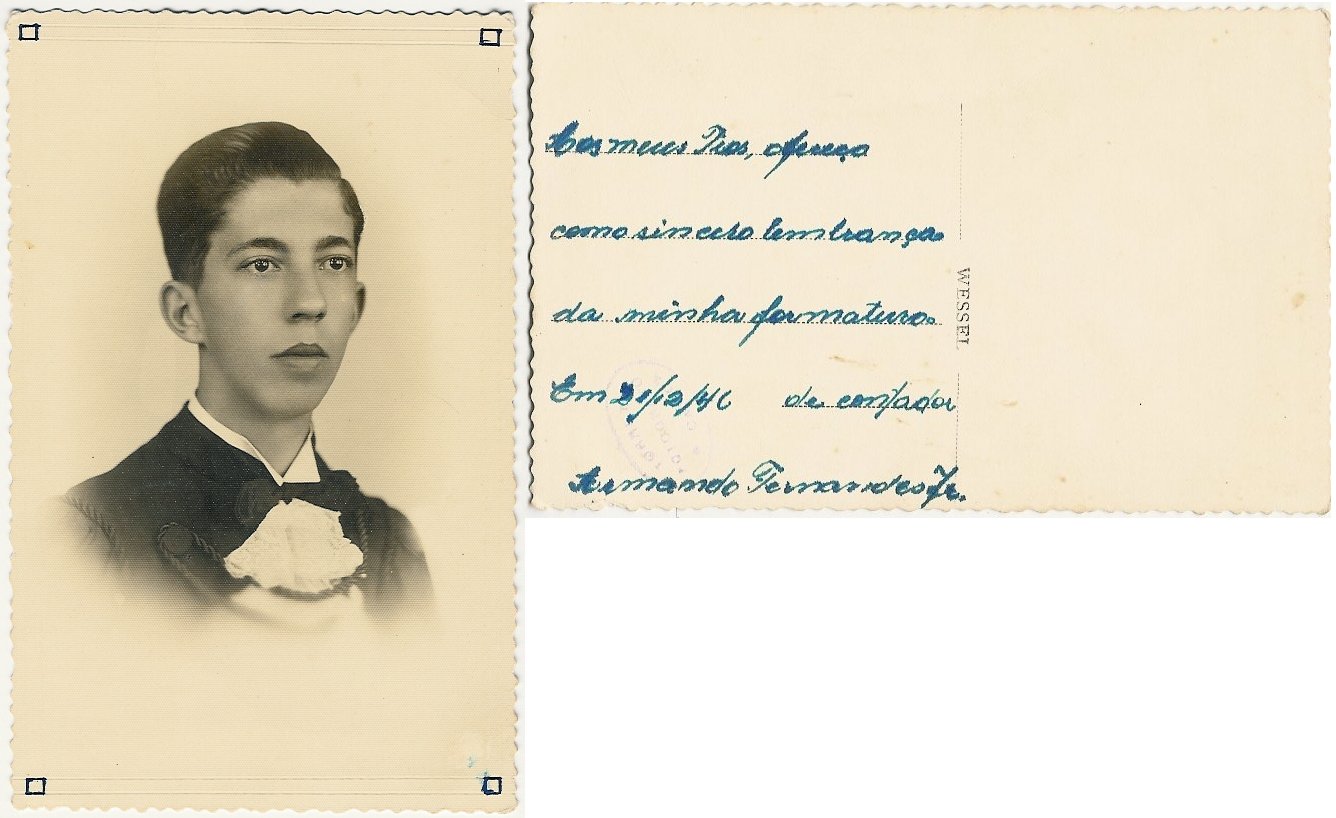 Aos meus Tios, ofereço
como sincera lembrança
da minha formatura
Em 21/12/46 de contador
Armando Fernandes Jr.
WESSEL